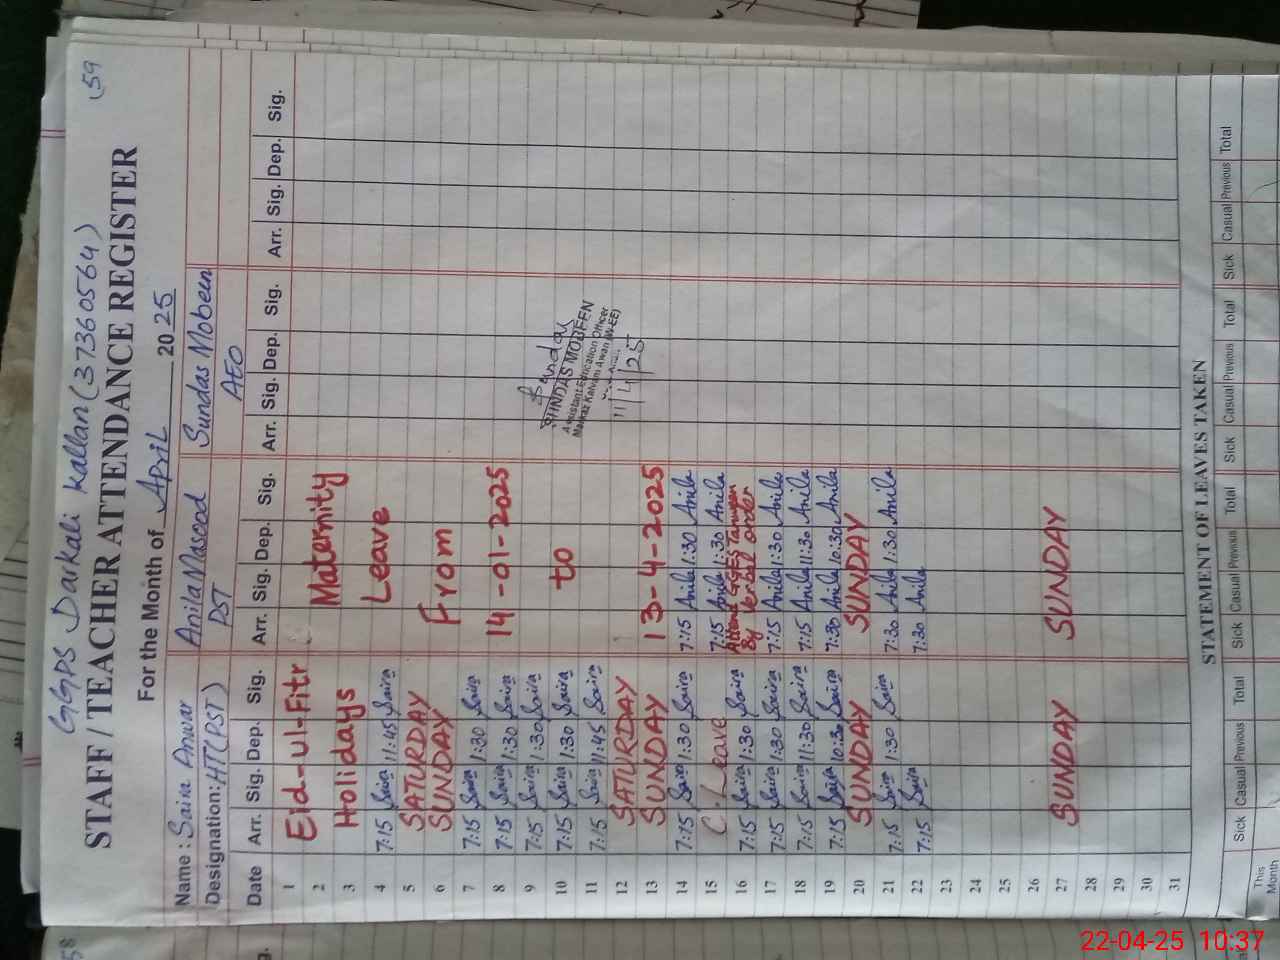 59
GGPS Darkali Kallan (37360564)
STAFF / TEACHER ATTENDANCE REGISTER
For the Month of April 2025
Name : Saira Anwar Anila Masood Sundas Mobeen
Designation: HT(PST) PST AEO
Date Arr. Sig. Dep. Sig. Arr. Sig. Dep. Sig. Arr. Sig. Dep. Sig. Arr. Sig. Dep. Sig.
1 Eid-Ul-Fitr
2 Maternity
3 Holidays
4 7:15 Saira 11:45 Saira Leave
5 SATURDAY
6 SUNDAY From
7 7:15 Saira 1:30 Saira
8 7:15 Saira 1:30 Saira 14-01-2025
9 7:15 Saira 1:30 Saira
10 7:15 Saira 1:30 Saira to
11 7:15 Saira 11:45 Saira
12 SATURDAY
13 SUNDAY 13-4-2025
14 7:15 Saira 1:30 Saira 7:15 Anila 1:30 Anila
15 C. Leave 7:15 Anila 11:30 Anila
16 7:15 Saira 1:30 Saira Attend GGES By Verbal order
17 7:15 Saira 1:30 Saira 7:15 Anila 1:30 Anila
18 7:15 Saira 11:30 Saira 7:15 Anila 11:30 Anila
19 7:15 Saira 10:30 Saira 7:30 Anila 10:30 Anila
20 SUNDAY SUNDAY
21 7:15 Saira 1:30 Saira 7:30 Anila 1:30 Anila
22 7:15 Saira 7:30 Anila
23
24
25
26
27 SUNDAY SUNDAY
28
29
30
31
Sundas
SUNDAS MOBEEN
Assistant Education Officer
Markaz Kalyam Awan (W-EE)
11/4/25
STATEMENT OF LEAVES TAKEN
Sick Casual Previous Total Sick Casual Previous Total Sick Casual Previous Total Sick Casual Previous Total
This
Month
58
g.
22-04-25 10:37